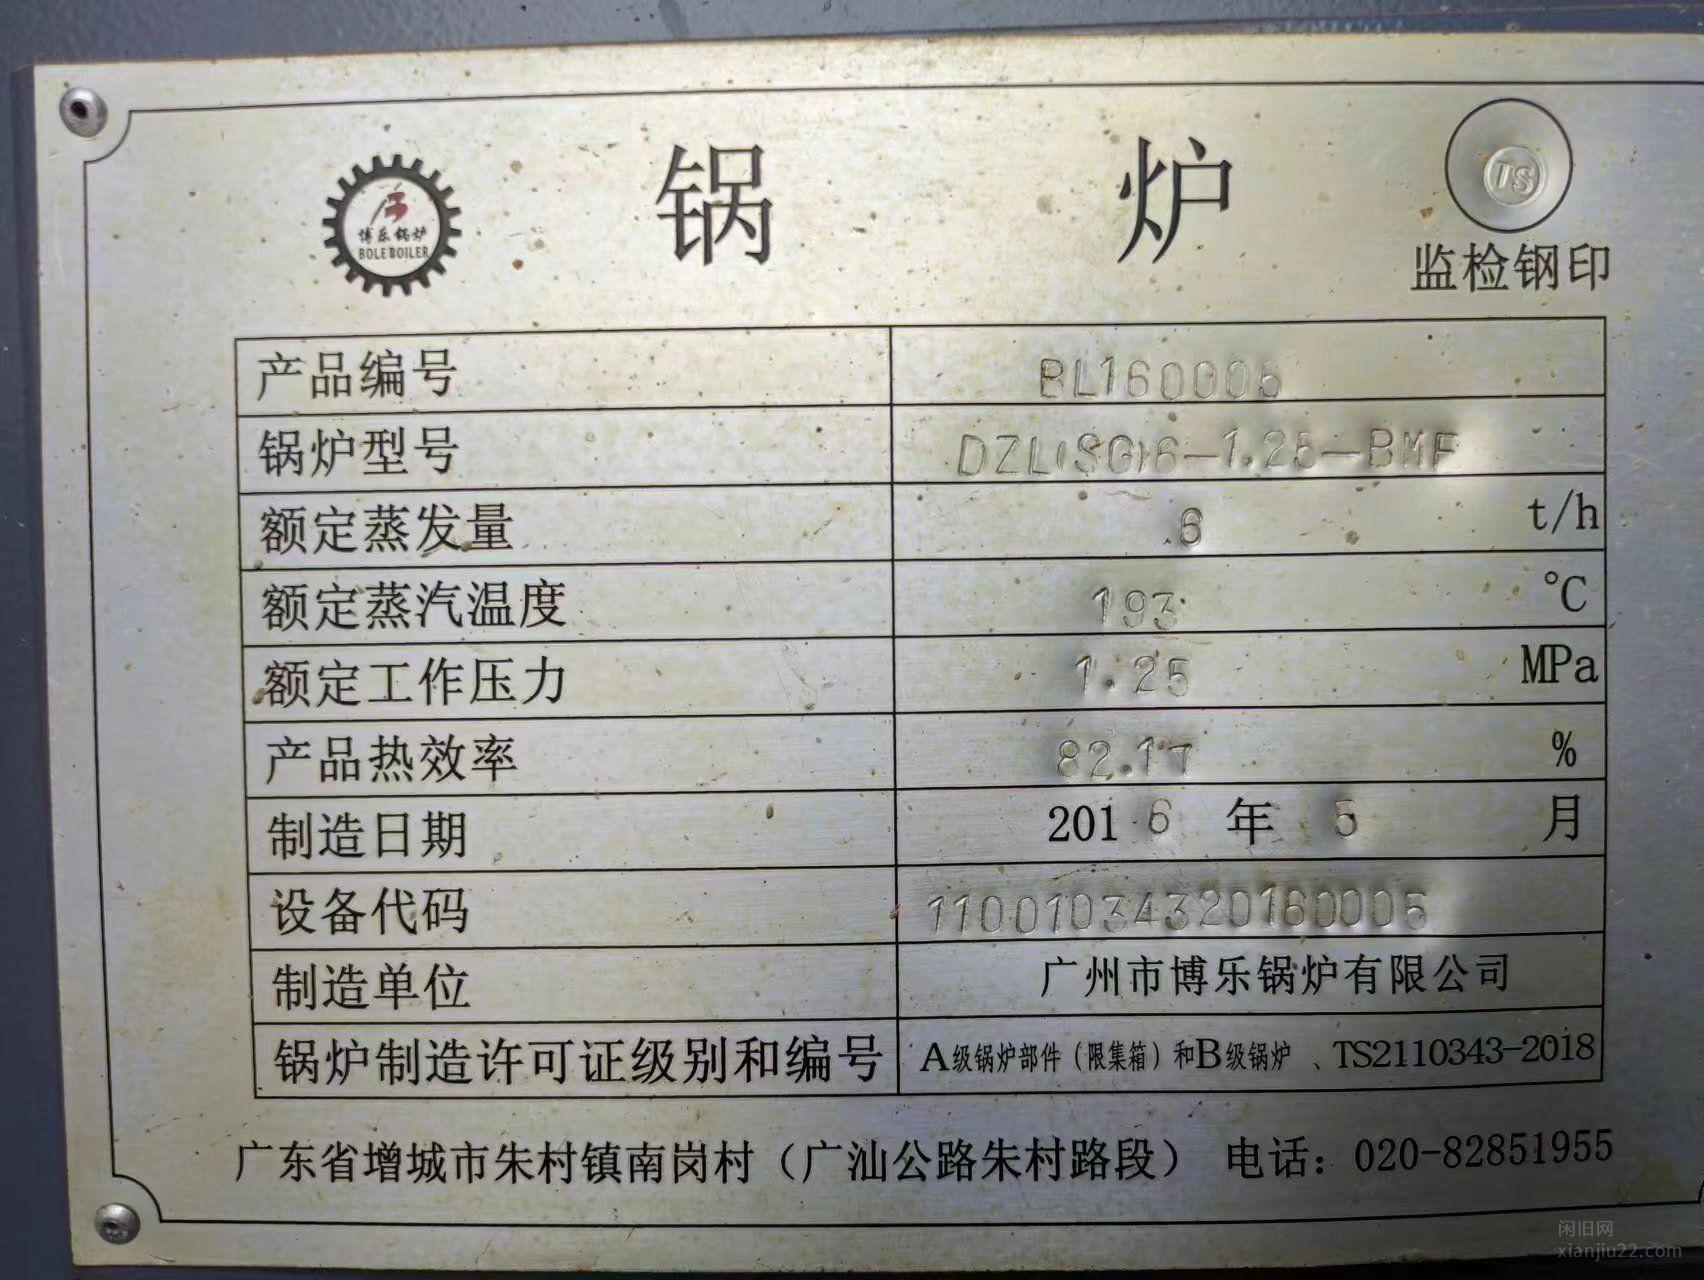 锅 炉
博乐锅炉
BOLE BOILER
TS
监检钢印
产品编号 BL160005
锅炉型号 DZL(SG)6-1.25-BMF
额定蒸发量 6 t/h
额定蒸汽温度 193 ℃
额定工作压力 1.25 MPa
产品热效率 82.17 %
制造日期 2016 年 5 月
设备代码 11001034320160005
制造单位 广州市博乐锅炉有限公司
锅炉制造许可证级别和编号 A级锅炉部件（限集箱）和B级锅炉 、TS2110343-2018
广东省增城市朱村镇南岗村（广汕公路朱村路段） 电话：020-82851955
闲旧网
xianjiu22.com